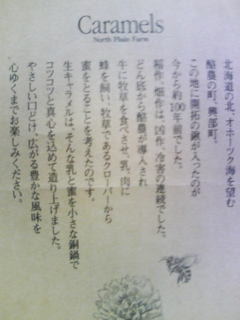 Caramels
North Plain Farm
北海道の北、オホーツク海を望む
酪農の町、興部町。
この地に開拓の鍬が入ったのが
今から約100年前でした。
稲作、畑作は、凶作、冷害の連続でした。
どん底から酪農が導入され
牛に牧草を食べさせ、乳、肉に
蜂を飼い、牧草であるクローバーから
蜜をとることを考えたのです。
生キャラメルは、そんな乳と蜜を小さな銅鍋で
コツコツと真心を込めて造り上げました。
やさしい口どけ、広がる豊かな風味を
心ゆくまでお楽しみください。